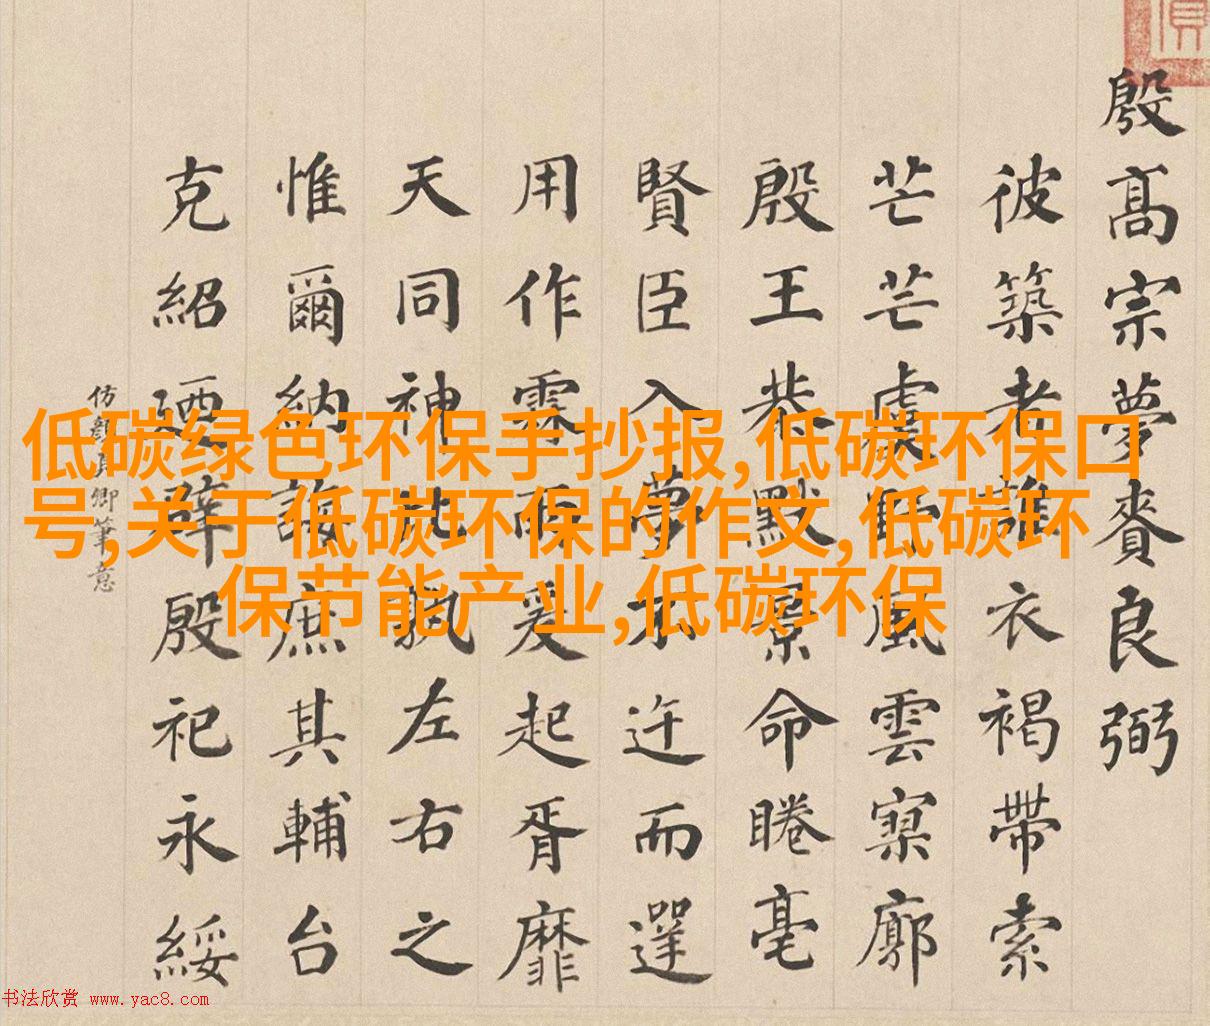 低碳绿色环保手抄报,低碳环保口
号,关于低碳环保的作文,低碳环
保节能产业,低碳环保
殷髙宗夢賚良弼
彼築者誰衣褐帶索
芒芒虞風雲寥廓
殷王恭默命睠亳
賢臣入夢不迕而遻
用作霖雨爰起胥靡
天同神左右之
惟爾納誨庶其輔台
克紹廼辟殷祀永綏
仿顏真卿筆意
书法欣赏 www.yac8.com